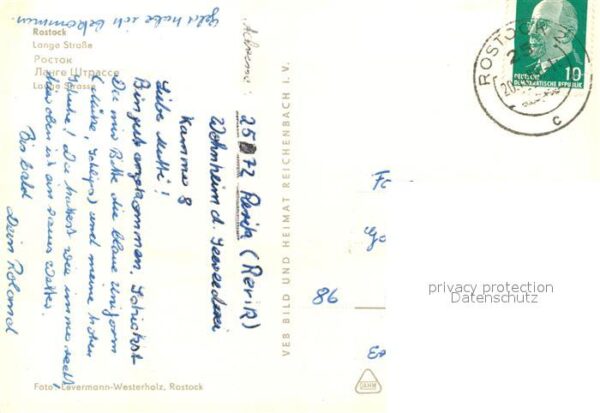 Geld habe ich bekommen.
Rostock
Lange Straße
Росток
Ланге Штрассе
Lange Strasse
Adresse:
2572 Rerik (Rerik)
Wohnheim d. Seereederei
Kammer 8
Liebe Mutti!
Bin gut angekommen. Schickst
Du mir bitte die blaue Uniform
(Mütze, Schlips) und meine hohen
Schuhe! Du hattest wie immer recht,
hier oben ist ein Wetter.
Bis bald
Dein Roland
VEB BILD UND HEIMAT REICHENBACH I. V.
86
Foto: Levermann-Westerholz, Rostock
ROSTOCK
25
20
c
10
DEUTSCHE
DEMOKRATISCHE REPUBLIK
privacy protection
Datenschutz